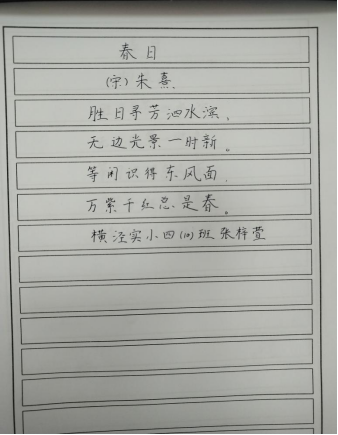 春日
(宋)朱熹
胜日寻芳泗水滨,
无边光景一时新。
等闲识得东风面,
万紫千红总是春。
横泾实小四(10)班张梓萱